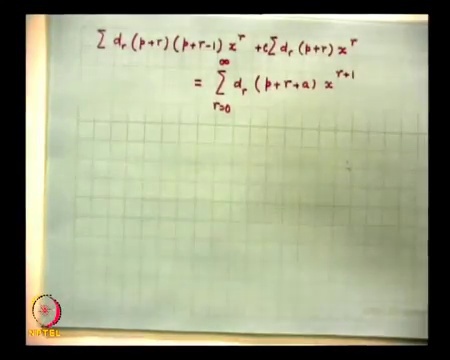 Σ d_r (p+r)(p+r-1) x^r + c Σ d_r (p+r) x^r
= Σ_{r=0}^{∞} d_r (p+r+a) x^{r+1}
NPTEL